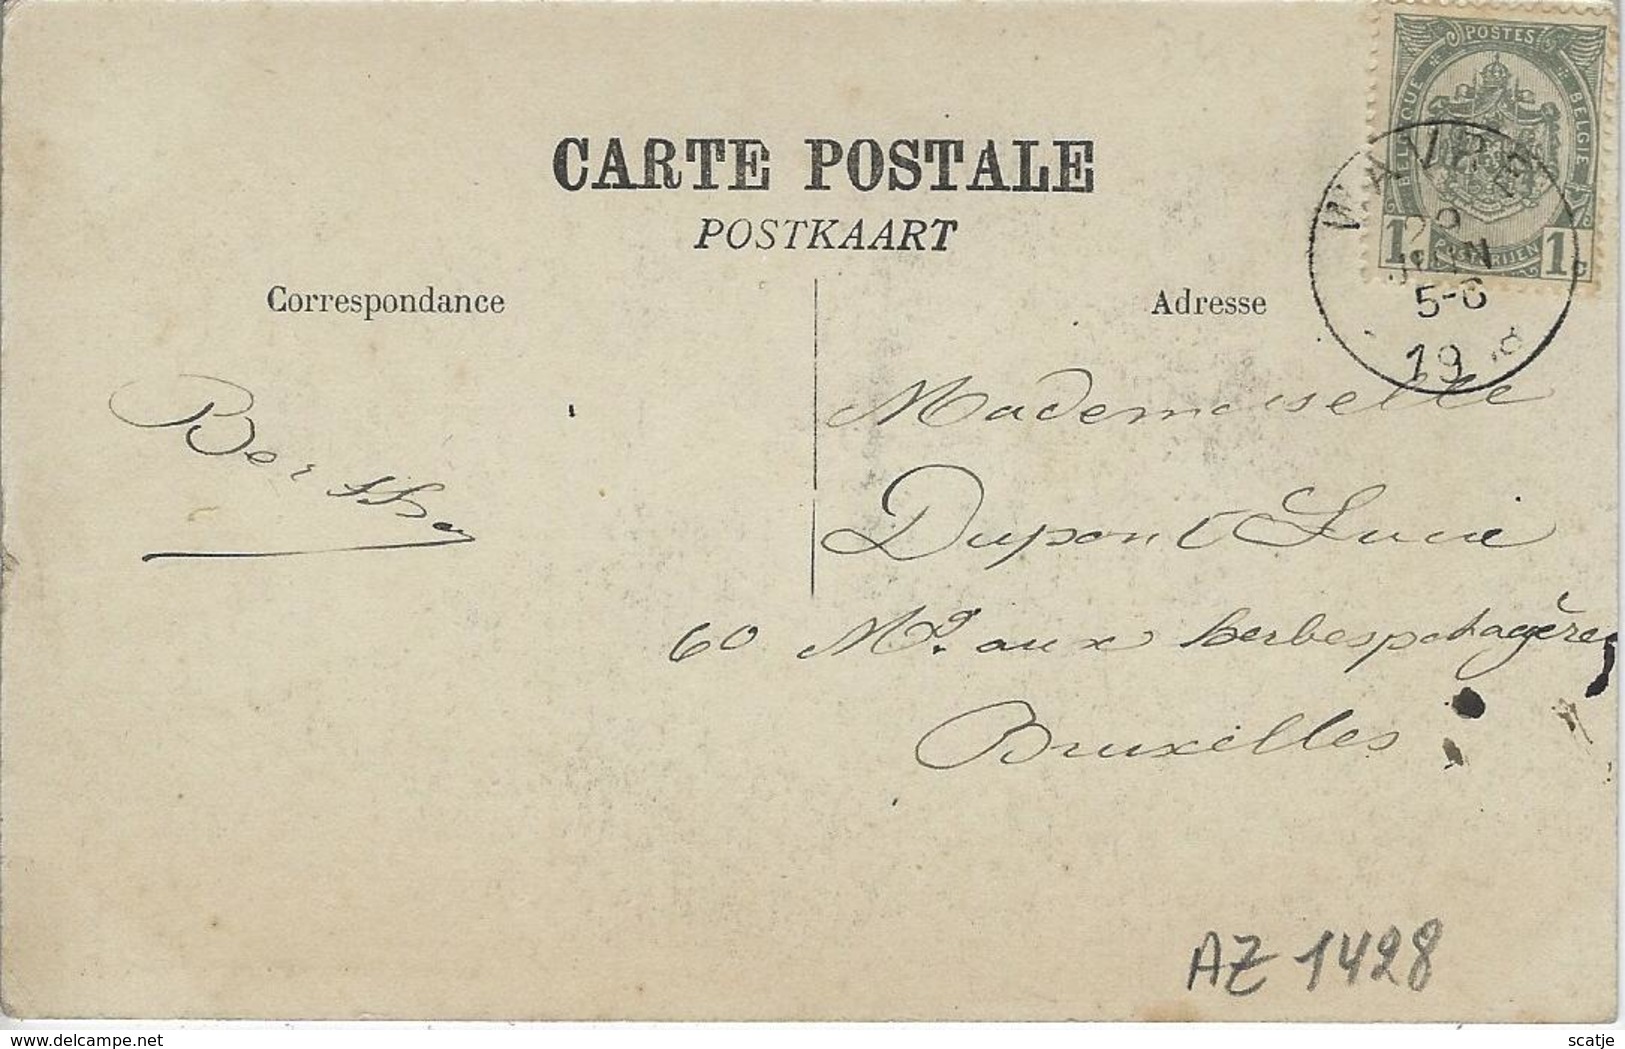 POSTES
BELGIQUE
BELGIE
1c POSTERIJEN 1c
WAVRE
JUIN
5-6
19 8
CARTE POSTALE
POSTKAART
Correspondance
Adresse
Berthe
Mademoiselle
Dupont Lucie
60 Mé aux herbes potagères
Bruxelles
AZ 1428
delcampe.net
scatje